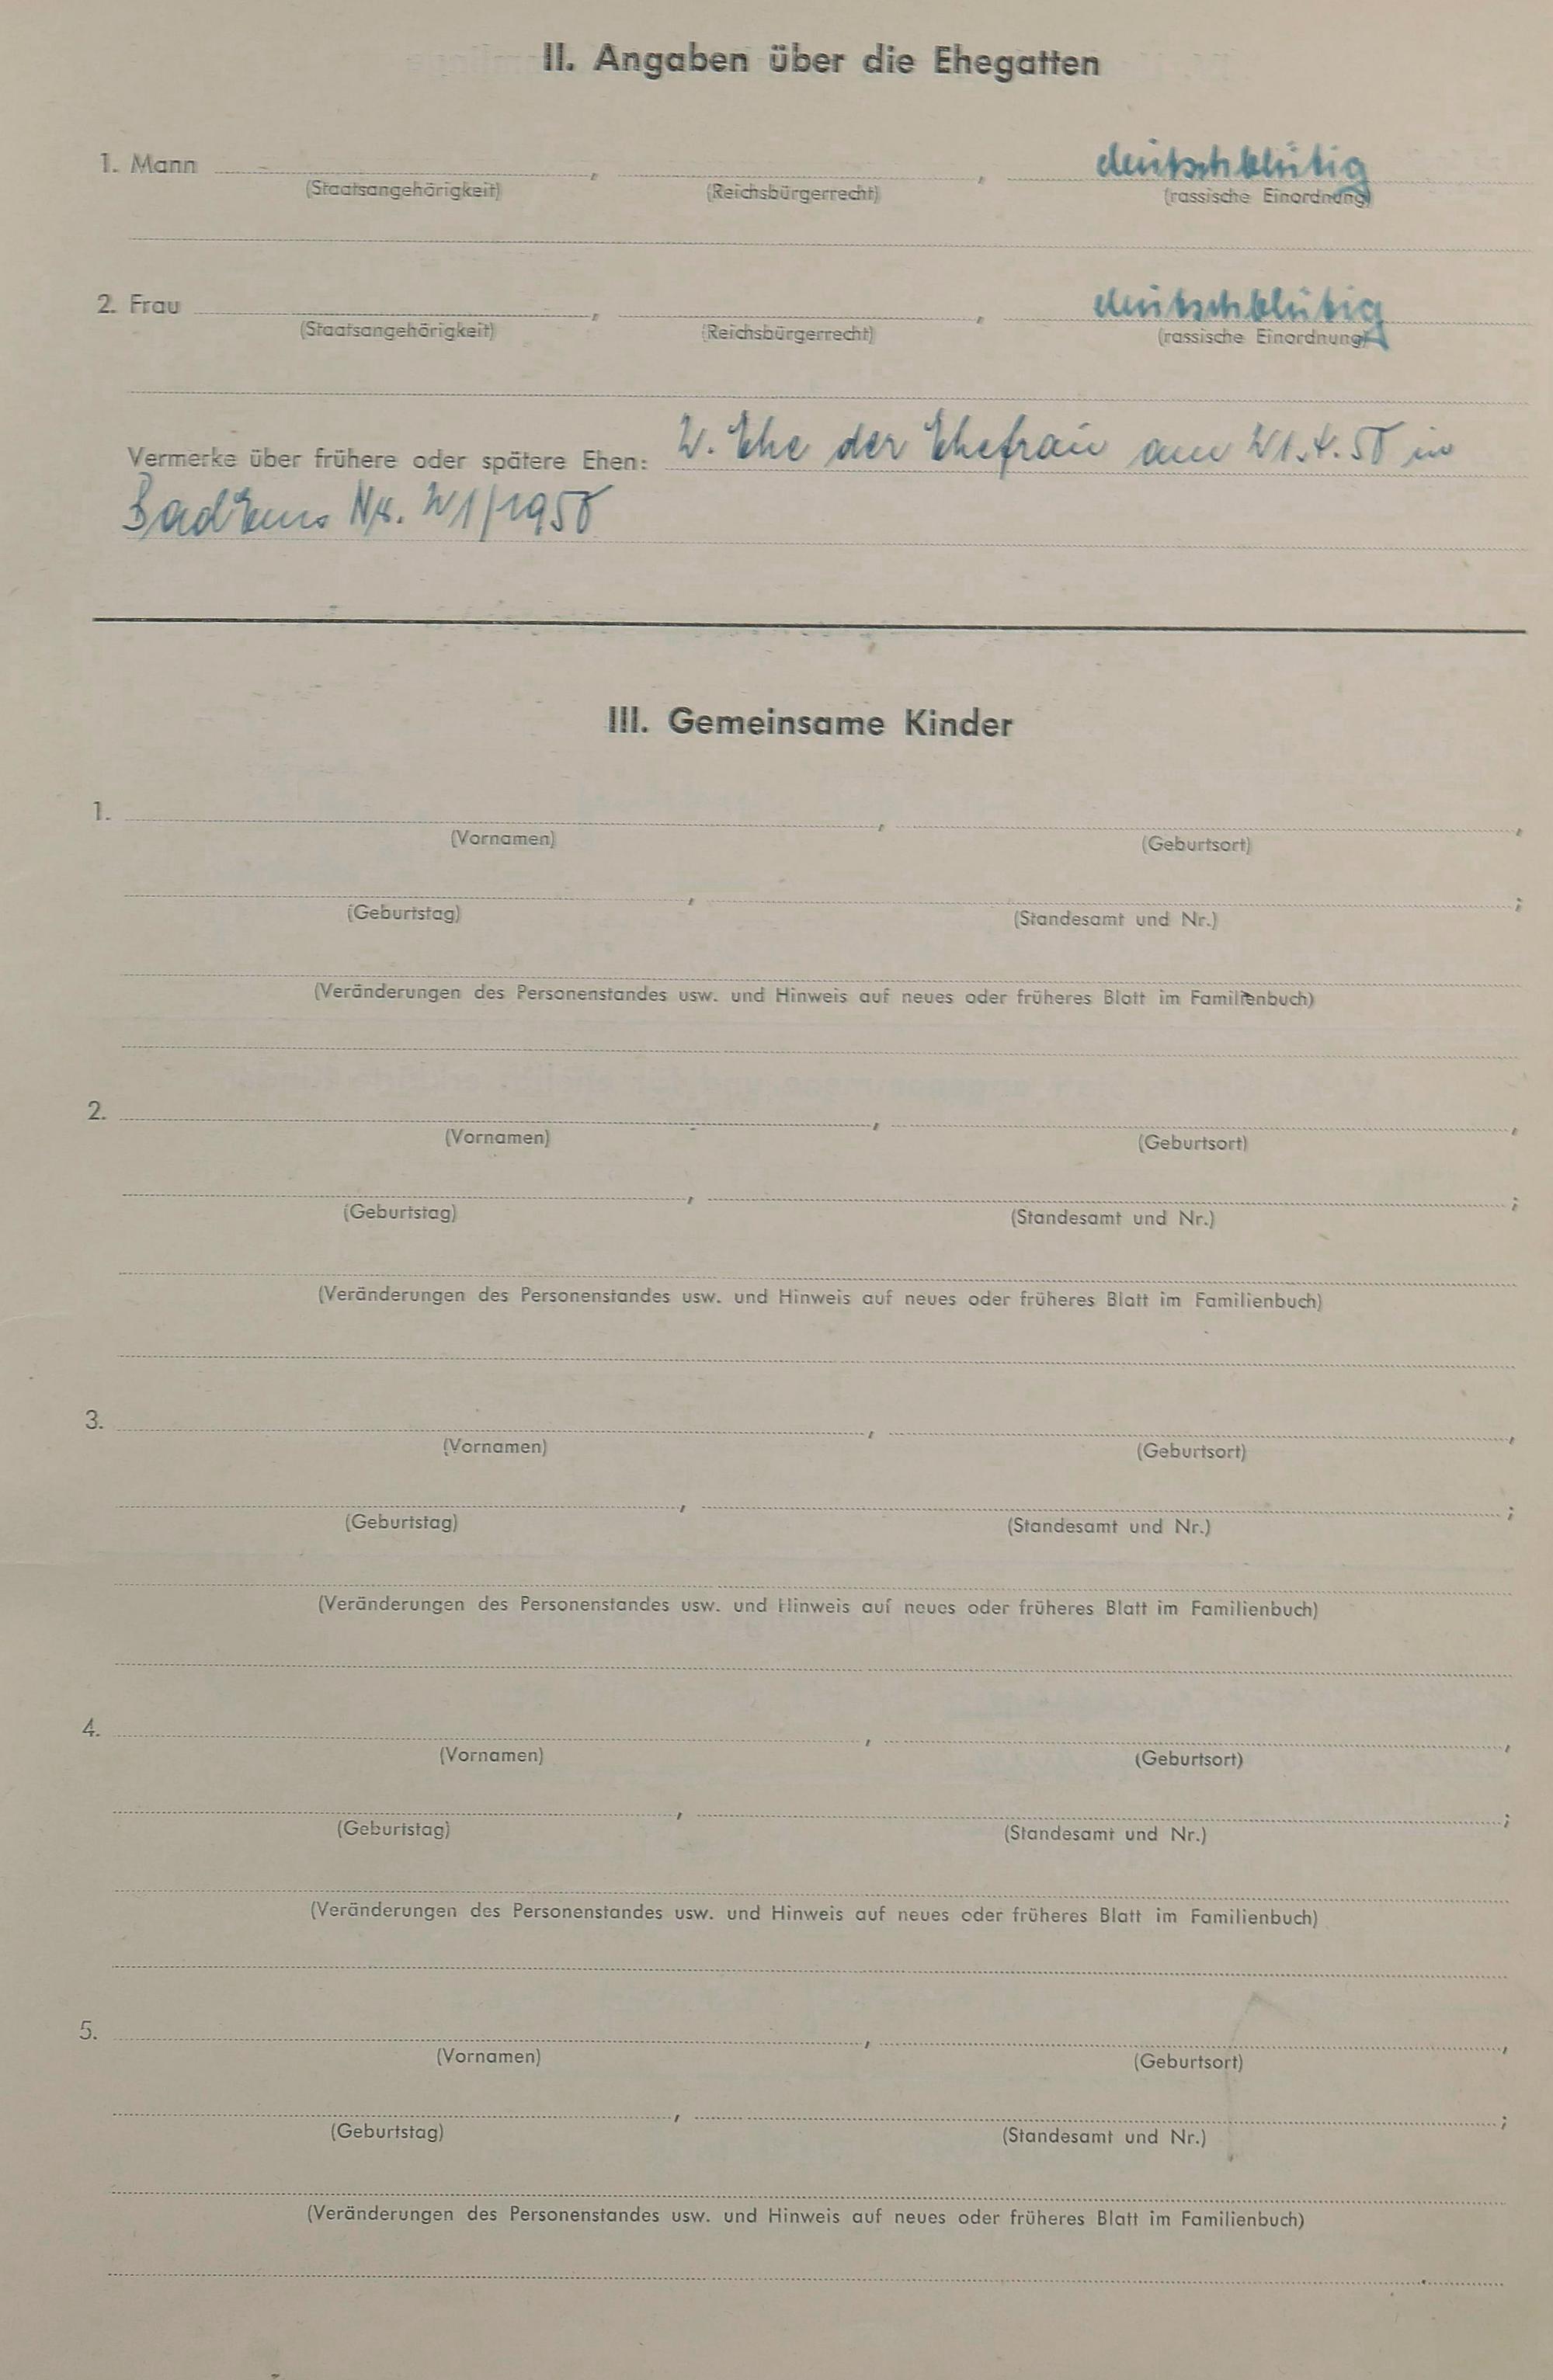 II. Angaben über die Ehegatten
1. Mann , , deutschblütig
(Staatsangehörigkeit) (Reichsbürgerrecht) (rassische Einordnung)
2. Frau , , deutschblütig
(Staatsangehörigkeit) (Reichsbürgerrecht) (rassische Einordnung)
Vermerke über frühere oder spätere Ehen: 2. Ehe der Ehefrau am 21.4.58 in
Bad Ems Nr. 21/1958
III. Gemeinsame Kinder
1. , ,
(Vornamen) (Geburtsort)
, ;
(Geburtstag) (Standesamt und Nr.)
(Veränderungen des Personenstandes usw. und Hinweis auf neues oder früheres Blatt im Familienbuch)
2. , ,
(Vornamen) (Geburtsort)
, ;
(Geburtstag) (Standesamt und Nr.)
(Veränderungen des Personenstandes usw. und Hinweis auf neues oder früheres Blatt im Familienbuch)
3. , ,
(Vornamen) (Geburtsort)
, ;
(Geburtstag) (Standesamt und Nr.)
(Veränderungen des Personenstandes usw. und Hinweis auf neues oder früheres Blatt im Familienbuch)
4. , ,
(Vornamen) (Geburtsort)
, ;
(Geburtstag) (Standesamt und Nr.)
(Veränderungen des Personenstandes usw. und Hinweis auf neues oder früheres Blatt im Familienbuch)
5. , ,
(Vornamen) (Geburtsort)
, ;
(Geburtstag) (Standesamt und Nr.)
(Veränderungen des Personenstandes usw. und Hinweis auf neues oder früheres Blatt im Familienbuch)